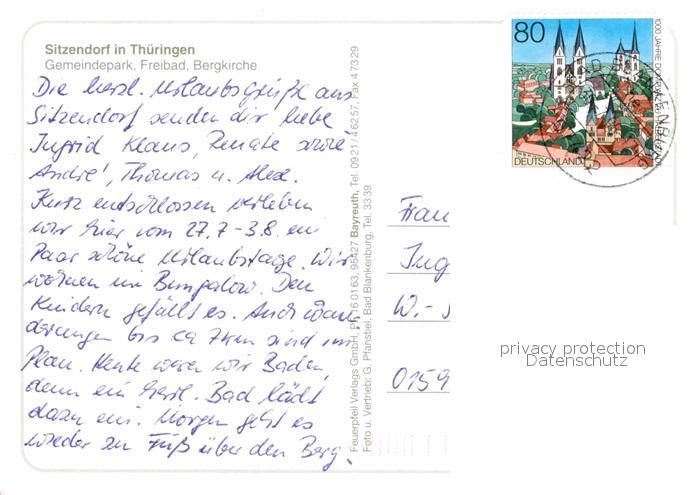 Sitzendorf in Thüringen
Gemeindepark, Freibad, Bergkirche
Die herzl. Urlaubsgrüße aus
Sitzendorf senden dir liebe
Ingrid Klaus, Renate sowie
André, Thomas u. Alex.
Kurz entschlossen verleben
wir hier vom 27.7-3.8. ein
Paar schöne Urlaubstage. Wir
wohnen im Bungalow. Den
Kindern gefällt es. Auch Wan-
derungen bis ca 7km sind im
Plan. Heute waren wir Baden,
denn ein herrl. Bad lädt
dazu ein. Morgen geht es
wieder zu Fuß über den Berg.
Feuerpfeil Verlags GmbH, PF 16 0163, 95427 Bayreuth, Tel. 0921/46257, Fax 47329
Foto u. Vertrieb: G. Pfanstiel, Bad Blankenburg, Tel. 3339
80
1000 JAHRE DOM
DEUTSCHLAND
Frau
Ing
W.-
0159
privacy protection
Datenschutz